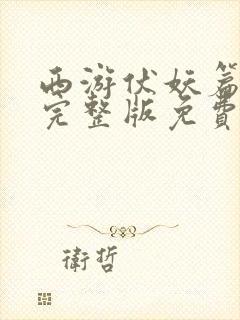 西游伏妖篇
完整版免費
衛哲